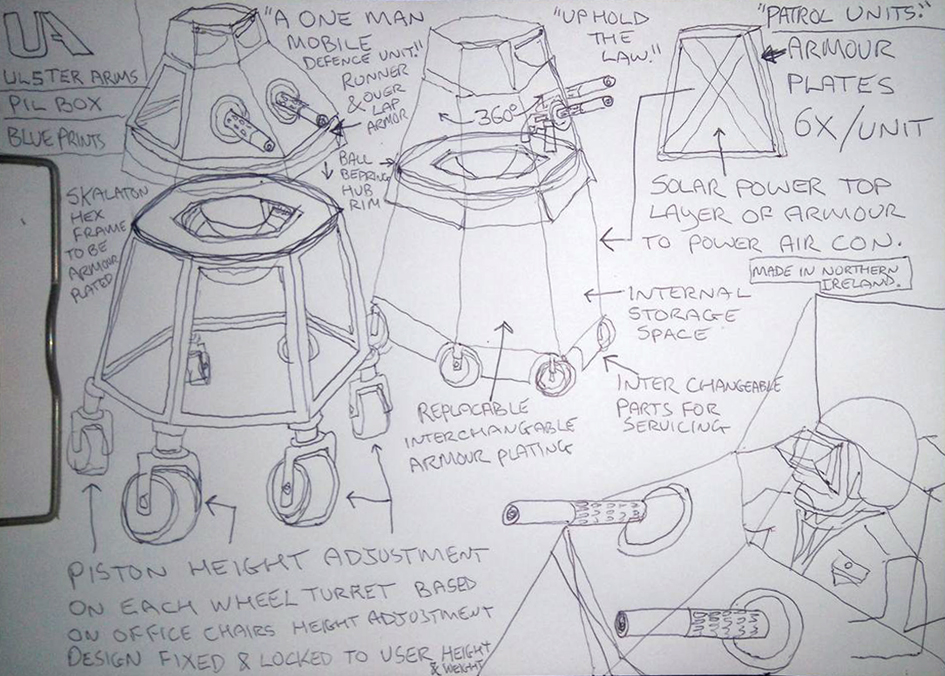 UA
ULSTER ARMS
PIL BOX
BLUE PRINTS
"A ONE MAN
MOBILE
DEFENCE UNIT."
RUNNER
& OVER
LAP
ARMOR
"UPHOLD
THE
LAW."
"PATROL UNITS."
ARMOUR
PLATES
6X/UNIT
360°
BALL
BEARING
HUB
RIM
SKALATON
HEX
FRAME
TO BE
ARMOUR
PLATED
SOLAR POWER TOP
LAYER OF ARMOUR
TO POWER AIR CON.
MADE IN NORTHERN
IRELAND.
INTERNAL
STORAGE
SPACE
INTER CHANGEABLE
PARTS FOR
SERVICING
REPLACABLE
INTERCHANGABLE
ARMOUR PLATING
PISTON HEIGHT ADJUSTMENT
ON EACH WHEEL TURRET BASED
ON OFFICE CHAIRS HEIGHT ADJUSTMENT
DESIGN FIXED & LOCKED TO USER HEIGHT
& WEIGHT